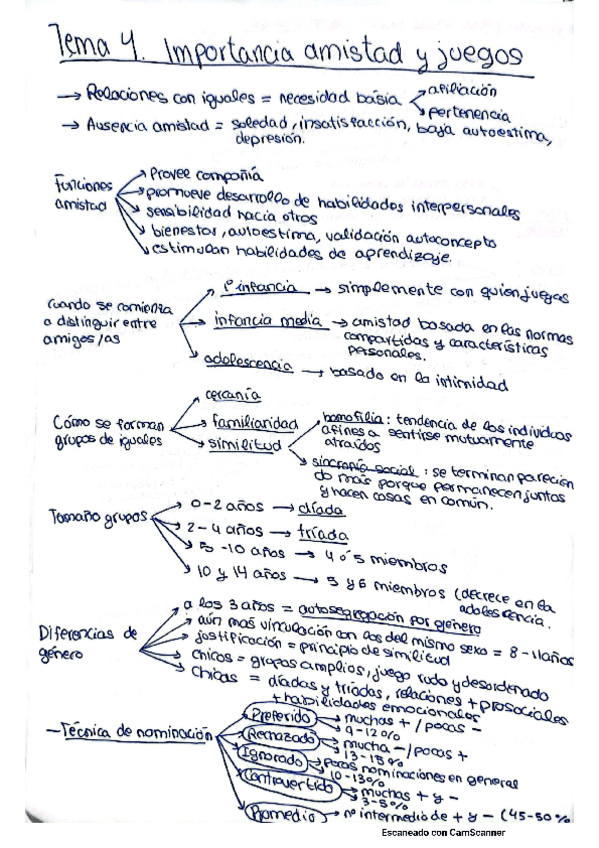 Tema 4. Importancia amistad y juegos
→ Relaciones con iguales = necesidad básia
afiliación
pertenencia
→ Ausencia amistad = soledad, insatisfacción, baja autoestima,
depresión.
Funciones
amistad
Provee compañía
promueve desarrollo de habilidades interpersonales
sensibilidad hacia otros
bienestar, autoestima, validación autoconcepto
estimulan habilidades de aprendizaje.
Cuando se comienza
a distinguir entre
amigos/as
1ª infancia → simplemente con quien juegas
infancia media → amistad basada en las normas
compartidas y características
personales.
adolescencia → basado en la intimidad
Cómo se forman
grupos de iguales
cercanía
familiaridad
similitud
homofilia: tendencia de los individuos
afines a sentirse mutuamente
atraídos
sincronía social: se terminan parecien
do más porque permanecen juntos
y hacen cosas en común.
Tamaño grupos
0-2 años → díada
2-4 años → tríada
5-10 años → 4 ó 5 miembros
10 y 14 años → 5 y 6 miembros (decrece en la
adolescencia.
Diferencias de
género
a los 3 años = autosegregación por género
aún más vinculación con los del mismo sexo = 8-11años
justificación = principio de similitud
chicos = grupos amplios, juego rudo y desordenado
chicas = díadas y tríadas, relaciones + prosociales
+ habilidades emocionales
- Técnica de nominación
Preferido → muchas + / pocas -
9-12%
Rechazado → mucha - / pocas +
13-15%
Ignorado → pocas nominaciones en general
10-13%
Controvertido → muchas + y -
3-5%
Promedio → nº intermedio de + y - (45-50%
Escaneado con CamScanner